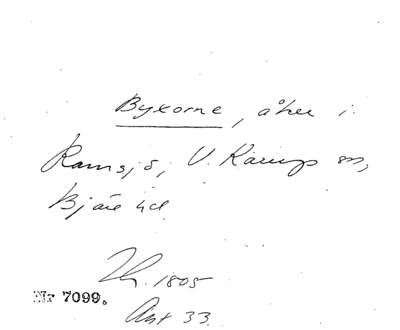 Byxorne, åker i
Ramsjö, V. Karup sn,
Bjäre hd
1805
Nr 7099.
Akt 33.